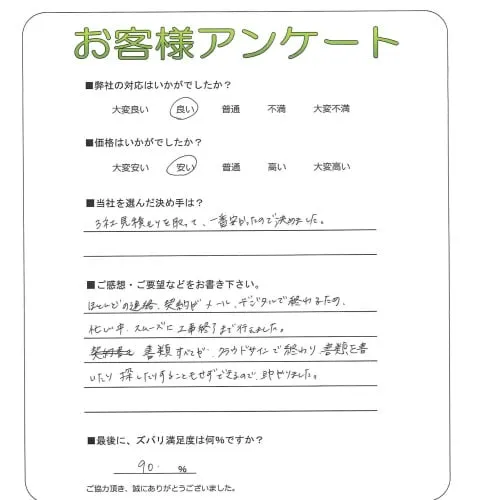 お客様アンケート
■弊社の対応はいかがでしたか?
大変良い 良い 普通 不満 大変不満
■価格はいかがでしたか?
大変安い 安い 普通 高い 大変高い
■当社を選んだ決め手は?
3社見積もりを取って、一番安かったので決めました。
■ご感想・ご要望などをお書き下さい。
ほとんどの連絡、契約がメール、デジタルで終わるため、
忙い中、スムーズに工事終了まで行えました。
書類すべてが、クラウドサインで終わり、書類を書
いたり探したりすることもせずできるので、助かりました。
■最後に、ズバリ満足度は何%ですか?
90. %
ご協力頂き、誠にありがとうございました。